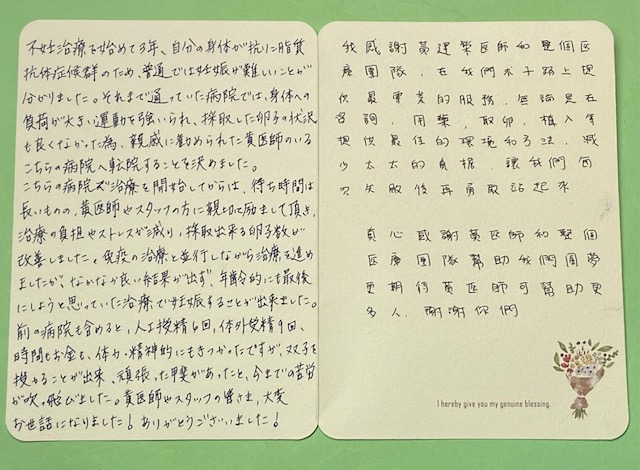 不妊治療を始めて3年、自分の身体が抗リン脂質
抗体症候群のため、普通では妊娠が難しいことが
分かりました。それまで通っていた病院では、身体への
負荷が大きい運動を強いられ、採取した卵子の状況
も良くなかった為、親戚に勧められた黃医師のいる
こちらの病院へ転院することを決めました。
こちらの病院で治療を開始してからは、待ち時間は
長いものの、黃医師やスタッフの方に親切に励まして頂き、
治療の負担やストレスが減り、採取出来る卵子の数が
改善しました。免疫の治療と並行しながら治療を進め
ましたが、なかなか良い結果が出ず、年齢的にも最後
にしようと思っていた治療で妊娠することが出来ました。
前の病院も含めると、人工授精6回、体外受精9回、
時間もお金も、体力・精神的にもきつかったですが、双子を
授かることが出来、頑張った甲斐があったと、今までの苦労
が吹っ飛びました。黃医師やスタッフの皆さま、大変
お世話になりました！ありがとうございました！
我感謝黃建榮医師和整個医
療團隊，在我們求子路上提
供最專業的服務，無論是在
咨詢，用藥，取卵，植入等
提供最佳的環境和方法，減
少太太的負擔，讓我們每
次失敗後再勇敢站起來
真心感謝黃医師和整個
医療團隊幫助我們圓夢
更期待黃医師可幫助更
多人，謝謝你們
I hereby give you my genuine blessing.